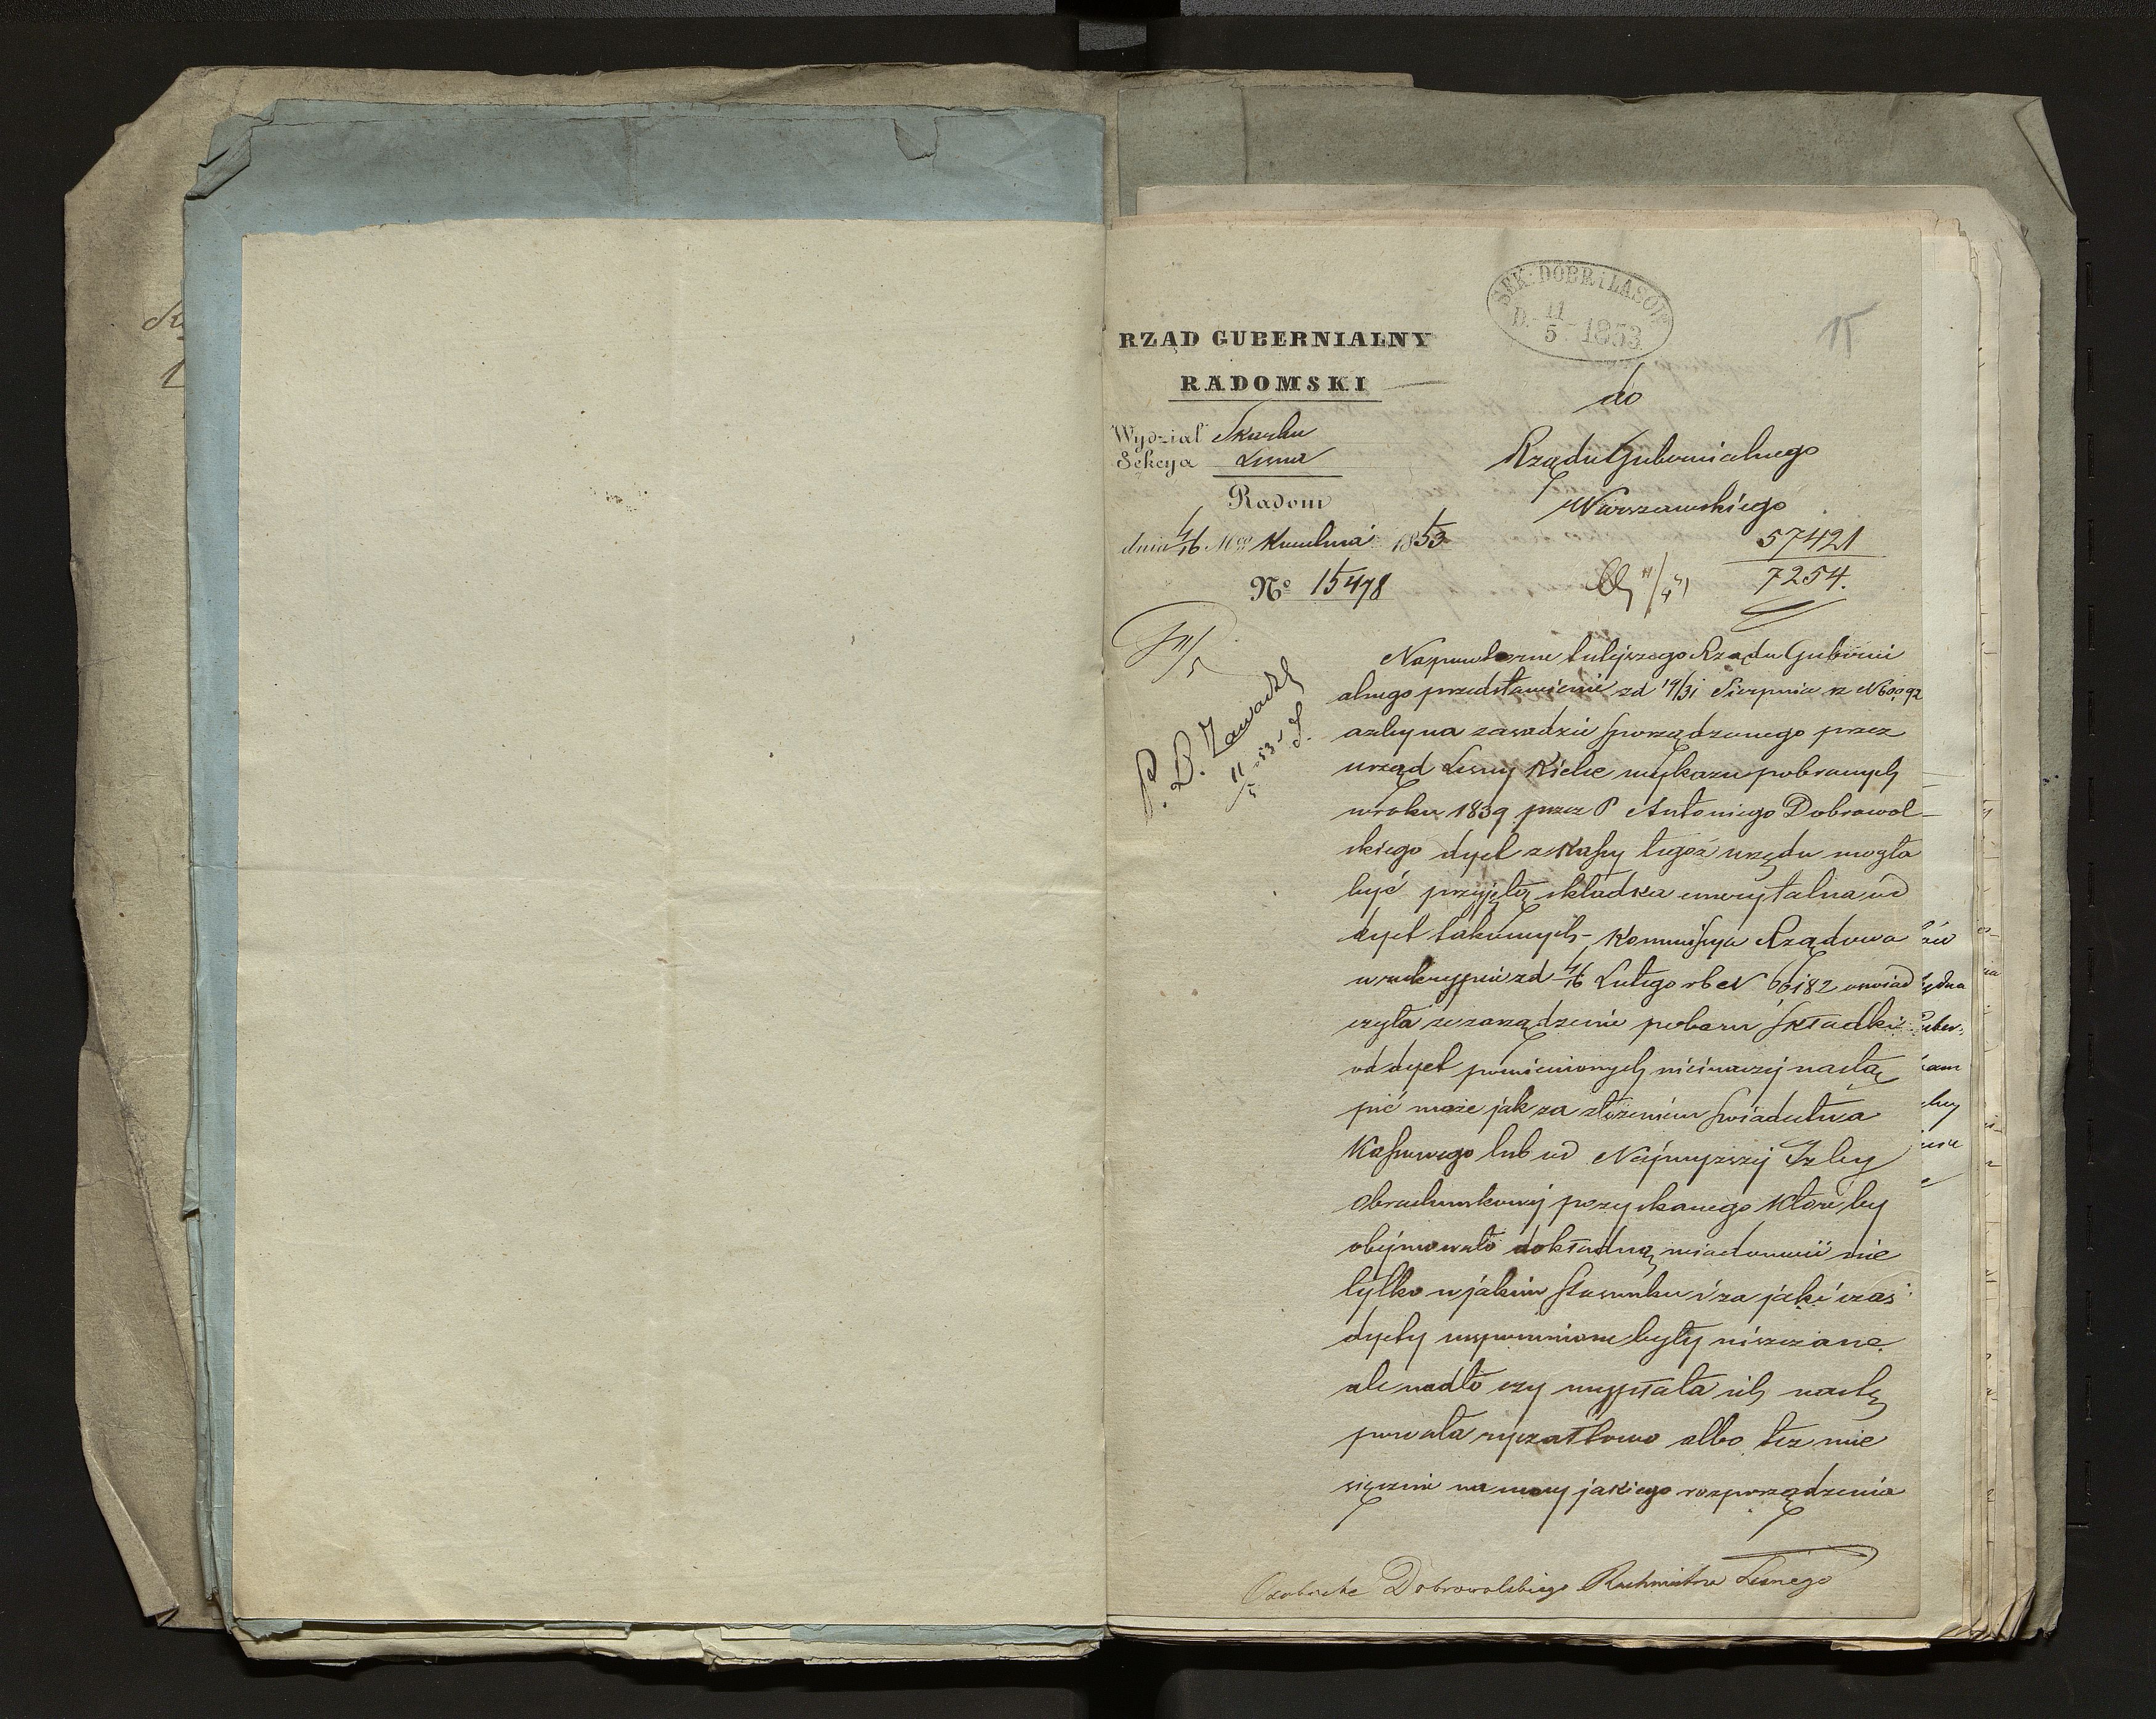 SEK. DOBR i LASÓW
D. 11/5 1853
15
RZĄD GUBERNIALNY
RADOMSKI
Wydział Skarbu
Sekcya Leśna
Radom
dnia 4/16 Mca Kwietnia 1853
No 15478
do
Rządu Gubernialnego
Warszawskiego
57421
7254.
11/5
P. D. Zawadzki
11/5 53
Na powtórne tutejszego Rządu Guberni
alnego przedstawienie zd 19/31 Sierpnia rz N 60092
ażeby na zasadzie sporządzonego przez
urząd Leśny Kielce wykazu pobranych
w roku 1839 przez P Antoniego Dobrowol-
skiego dyet z Kassy tegoż urzędu mogła
być przyjętą składka emerytalna od
dyet takowych - Kommissya Rządowa
w reskrypcie zd 4/16 Lutego rb N 66182 oświad
czyła że zarządzenie poboru składki
od dyet pomienionych nie inaczej nastą
pić może jak za złożeniem świadectwa
Kassowego lub od Najwyższej Izby
Obrachunkowej pozyskanego któreby
obejmowało dokładną wiadomość nie
tylko w jakim stosunku i za jaki czas
dyety wspomnione były uiszczane
ale nadto czy wypłata ich nastę
powała ryczałtowo albo też mie
sięcznie na mocy jakiego rozporządzenia
Dobrowolskiego Rachmistrza Leśnego